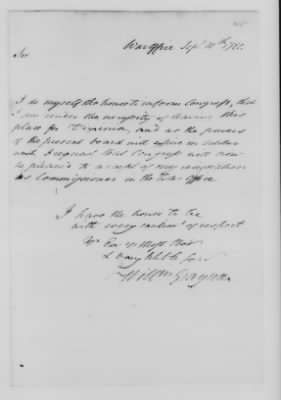 War Office Sepr 10th 1781.
Sir.
I do myself the honor to inform Congress, that
I am under the necessity of leaving this
place for Virginia, and as the powers
of the present board will expire in October
next I request that Congress will now
be pleased to accept of my resignation
as Commissioner in the War Office
I have the honor to be
with every sentimt of respect
Yr Excy's Most Obedt
& very Hble Serv
Willm Grayson